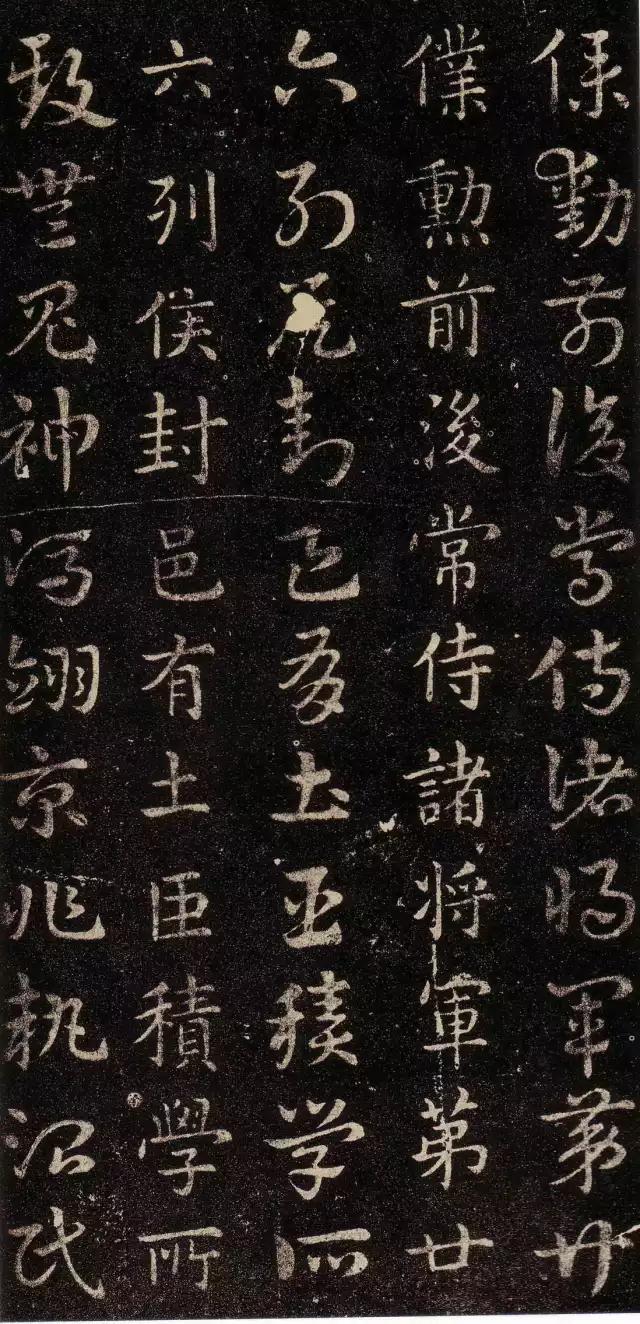 僕勳前後常侍諸將軍第廿
僕勳前後常侍諸將軍第廿
六列侯封邑有土臣積學所
六列侯封邑有土臣積學所
致無鬼神馮翊京兆執治民